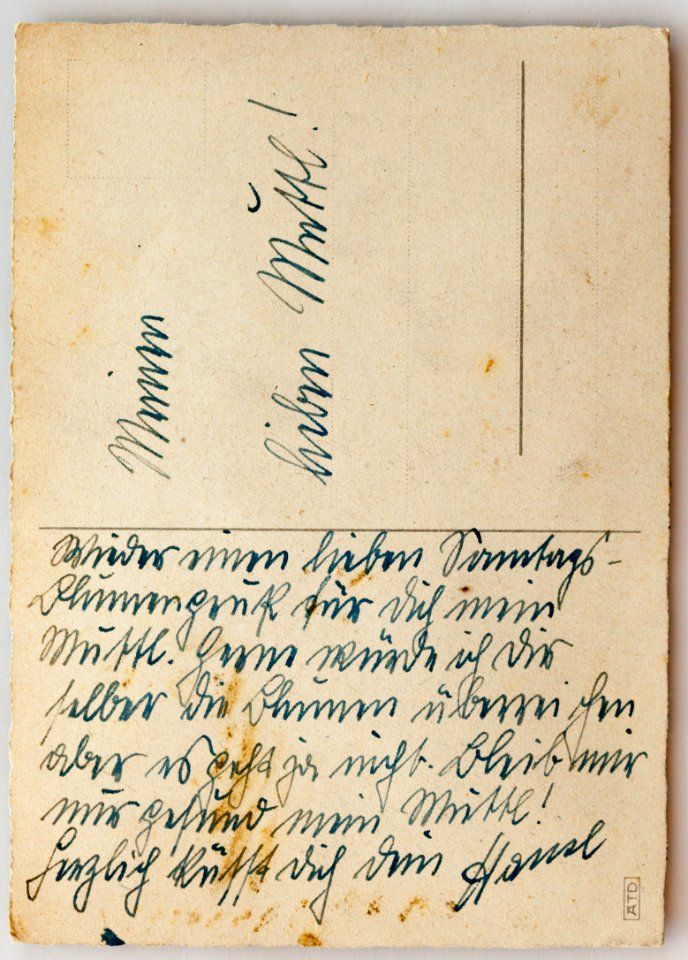 Meinem
lieben Muttl!
Wieder einen lieben Sonntags-
Blumengruß für dich mein
Muttl. Gerne würde ich dir
selber die Blumen überreichen
aber es geht ja nicht. Bleib mir
nur gesund mein Muttl!
Herzlich küsst dich dein Hansl
ATD